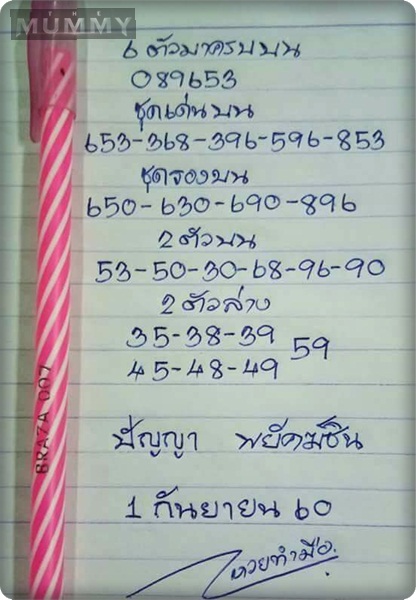 THE
MUMMY
6 ตัวมาครบบน
089653
ชุดเด่นบน
653-368-396-596-853
ชุดรองบน
650-630-690-896
2 ตัวบน
53-50-30-68-96-90
2 ตัวล่าง
35-38-39
59
45-48-49
BRAZA 007
ปัญญา พยัคฆ์ชิน
1 กันยายน 60
หวยทำมือ.